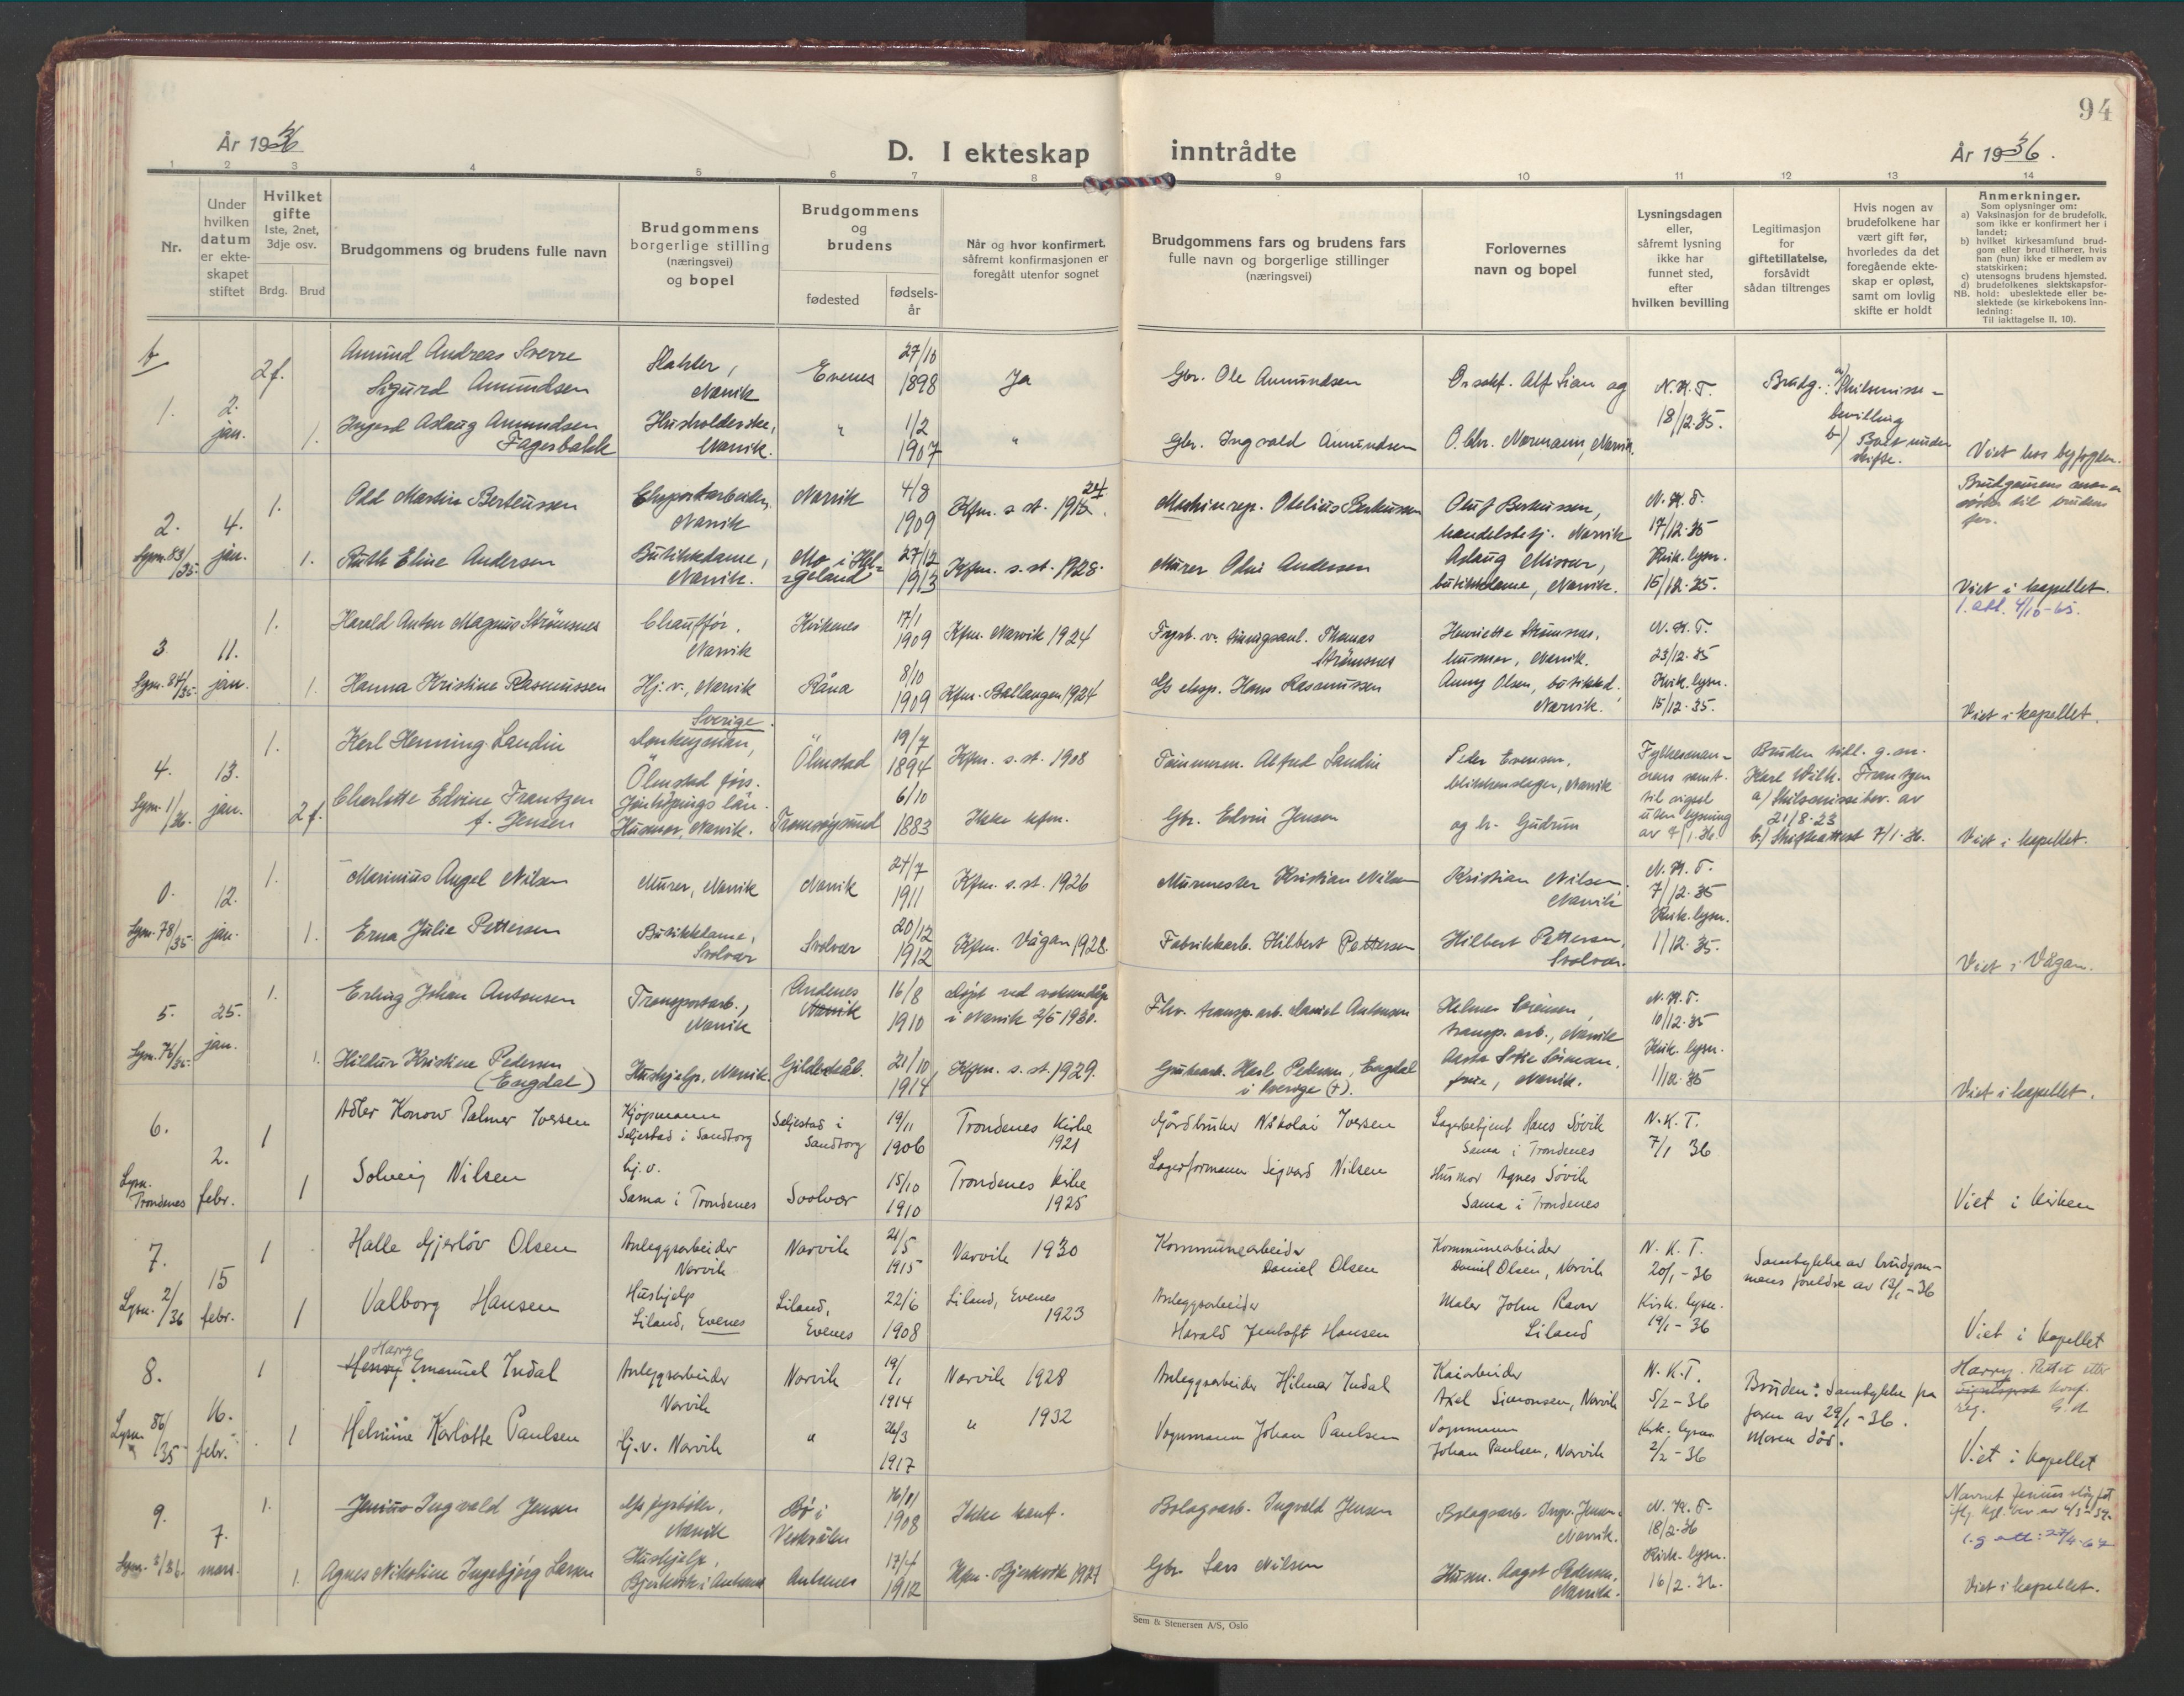 94
År 1936
D. I ekteskap inntrådte
År 1936.
1 2 3 4 5 6 7 8 9 10 11 12 13 14
Nr.
Under hvilken datum er ekte-skapet stiftet
Hvilket gifte
1ste, 2net, 3dje osv.
Brdg. Brud
Brudgommens og brudens fulle navn
Brudgommens borgerlige stilling (næringsvei) og bopel
Brudgommens og brudens
fødested
fødsels-år
Når og hvor konfirmert, såfremt konfirmasjonen er foregått utenfor sognet
Brudgommens fars og brudens fars fulle navn og borgerlige stillinger (næringsvei)
Forlovernes navn og bopel
Lysningsdagen eller, såfremt lysning ikke har funnet sted, efter hvilken bevilling
Legitimasjon for giftetillatelse, forsåvidt sådan tiltrenges
Hvis nogen av brudefolkene har vært gift før, hvorledes da det foregående ekte-skap er opløst, samt om lovlig skifte er holdt
Anmerkninger.
Som oplysninger om:
a) Vaksinasjon for de brudefolk, som ikke er konfirmert her i landet;
b) hvilket kirkesamfund brud-gom eller brud tilhører, hvis han (hun) ikke er medlem av statskirken;
c) utensogns brudens hjemsted.
d) brudefolkenes slektskapsfor-hold: ubeslektede eller be-slektede (se kirkebokens inn-ledning:
NB.
Til iakttagelse II, 10).
1. 2. jan. 2 f.
Amund Andreas Sverre
Sigurd Amundsen
Slakter, Narvik
Evenes
27/10 1898
Ja
Gbr. Ole Amundsen
O.r.sakf. Alf Lian og
N.K.T.
18/12.35.
Brudg.: a) Skilsmisse-
bevilling
b) Boet under
skifte.
1.
Ingerd Aslaug Amundsen
Fagerbakk
Husholderske, Narvik.
"
1/2 1907
"
Gbr. Ingvald Amundsen
O. Chr. Normann, Narvik.
Viet hos byfogden.
2. 4. jan. 1.
Lysn. 83/35.
Odd Martin Berteussen
Eksportarbeider, Narvik
Narvik
4/8 1909
Kfm. s. st. 1924.
Maskinrep. Otelius Berteussen
Oluf Berteussen,
handelsbetj. Narvik
N.K.T.
17/12.35
Brudgommens mor er
søster til brudens
far.
1.
Ruth Eline Andersen
Butikkdame, Narvik.
Mo i Hel-
geland
27/12 1913
Kfm. s. st. 1928.
Murer Odin Andersen
Aslaug Misvær,
butikkdame, Narvik.
Kirk. lysn.
15/12.35.
Viet i kapellet.
1. att. 4/10-65.
3 11. jan. 1.
Lysn. 84/35.
Harald Anton Magnus Strömsnes
Chauffør, Narvik
Kvitnes
17/1 1909
Kfm. Narvik 1924
Fyrb. v. Thomas
Strömsnes
Henriette Strömsnes,
husmor, Narvik.
N.K.T.
23/12.35
1.
Hanna Kristine Rasmussen
Hj. v., Narvik
Råna
8/10 1909
Kfm. Ballangen 1924
Hans Rasmussen
Anny Olsen, butikkd.
Narvik.
Kirk. lysn.
15/12.35.
Viet i kapellet.
4. 13. jan. 1.
Lysn. 1/36.
Karl Henning Landin
Sverige.
Ölmstad förs.
Jönköpings län.
Ölmstad
19/7 1894
Kfm. s. st. 1908
Tømmerm. Alfred Landin
Peder Evensen,
blikkenslager, Narvik
Fylkesman-
nens samt.
til vigsel
uten lysning
av 7/1.36.
Bruden tidl. g. m.
Karl Wilh. Frantzen
a) Skilsmissebev. av
21/8.23
b) Skifteattest 7/1.36.
2 f.
Charlotte Edvine Frantzen
f. Jensen
Husmor, Narvik.
Tromsøysund
6/10 1883
Ikke kfm.
Gbr. Edvin Jensen
og h. Gudrun
Viet i kapellet.
0. 12. jan. 1.
Lysn. 78/35.
Marinius Angel Nilsen
Murer, Narvik
Narvik
24/7 1911
Kfm. s. st. 1926
Murmester Kristian Nilsen
Kristian Nilsen,
Narvik
N.K.T.
7/12.35
1.
Erna Julie Pettersen
Butikkdame, Svolvær
Svolvær
20/12 1912
Kfm. Vågan 1928.
Fabrikkarb. Hilbert Pettersen
Hilbert Pettersen,
Svolvær.
Kirk. lysn.
1/12.35.
Viet i Vågan.
5. 25. jan. 1.
Lysn. 76/35.
Erling Johan Antonsen
Transportarb., Narvik
Andenes
Narvik
16/8 1910
Døpt ved voksendåp
i Narvik 2/5 1930.
Fhv. transp. arb. Daniel Antonsen
Helmer Sørensen,
transp. arb., Narvik
N.K.T.
10/12.35
1.
Hildur Kristine Pedersen
(Engdal)
Hushjelp, Narvik.
Gildeskål.
21/10 1914
Kfm. s. st. 1929.
Grubearb. Karl Pedersen, Engdal
i Sverige (†).
Sørensen,
frue, Narvik.
Kirk. lysn.
1/12.35
Viet i kapellet.
6. 2. febr. 1
Lysn. Trondenes
Adler Konow Palmer Iversen
Kjøpmann
Seljestad i Sandtorg
Seljestad i
Sandtorg
19/11 1906
Trondenes kirke
1921
Gårdbruker Nikolai Iversen
Lagerbetjent Hans Søvik
Sama i Trondenes
N.K.T.
7/1 36
1
Solveig Nilsen
hj. v.
Sama i Trondenes
Svolvær
15/10 1910
Trondenes kirke
1925
Lagerformann Sigvard Nilsen
Husmor Agnes Søvik
Sama i Trondenes
Viet i kirken
7. 15 febr. 1
Lysn. 2/36
Halle Gjerløv Olsen
Anleggsarbeider
Narvik
Narvik
21/5 1915
Narvik 1930
Kommunearbeider
Daniel Olsen
Kommunearbeider
Daniel Olsen, Narvik
N.K.T.
20/1-36
Samtykke av brudgom-
mens foreldre av 12/1-36
1
Valborg Hansen
Hushjelp
Liland, Evenes
Liland,
Evenes
22/6 1908
Liland, Evenes
1923
Anleggsarbeider
Harald Jentoft Hansen
Maler John Ravn
Liland
Kirk. lysn.
19/1-36
Viet i kapellet
8. 16. febr. 1
Lysn. 86/35
Harry
Henry Emanuel Indal
Anleggsarbeider
Narvik
Narvik
19/1 1914
Narvik 1928
Anleggsarbeider Hilmar Indal
Kaiarbeider
Axel Simonsen, Narvik
N.K.T.
5/2-36
Bruden: Samtykke fra
faren av 29/1-36.
Moren død.
Harry. Rettet etter
konf.
reg. G.d.
1
Helmine Karlotte Paulsen
Hj.v. Narvik
"
26/3 1917
" 1932
Vognmann Johan Paulsen
Vognmann
Johan Paulsen, Narvik
Kirk. lysn.
2/2-36
Viet i kapellet
9. 7. mars. 1.
Lysn. 3/36.
Jenius Ingvald Jensen
Narvik
Bø i
Vesterålen
16/8 1908
Ikke konf.
Bolagsarb. Ingvald Jensen
Bolagsarb. Ingv. Jensen,
Narvik.
N.K.T.
18/2.36
Navnet Jenius sløyfet
1. g att: 27/4-64
1.
Agnes Nikoline Ingebjørg Larsen
Hushjelp,
Bjerkvik i Ankenes
Ankenes
17/4 1912
Kfm. Bjerkvik 1927
Gbr. Lars Nilsen
Husm. Aagot Pedersen,
Narvik.
Kirk. lysn.
16/2.36.
Viet i kapellet.
Sem & Stenersen A/S, Oslo